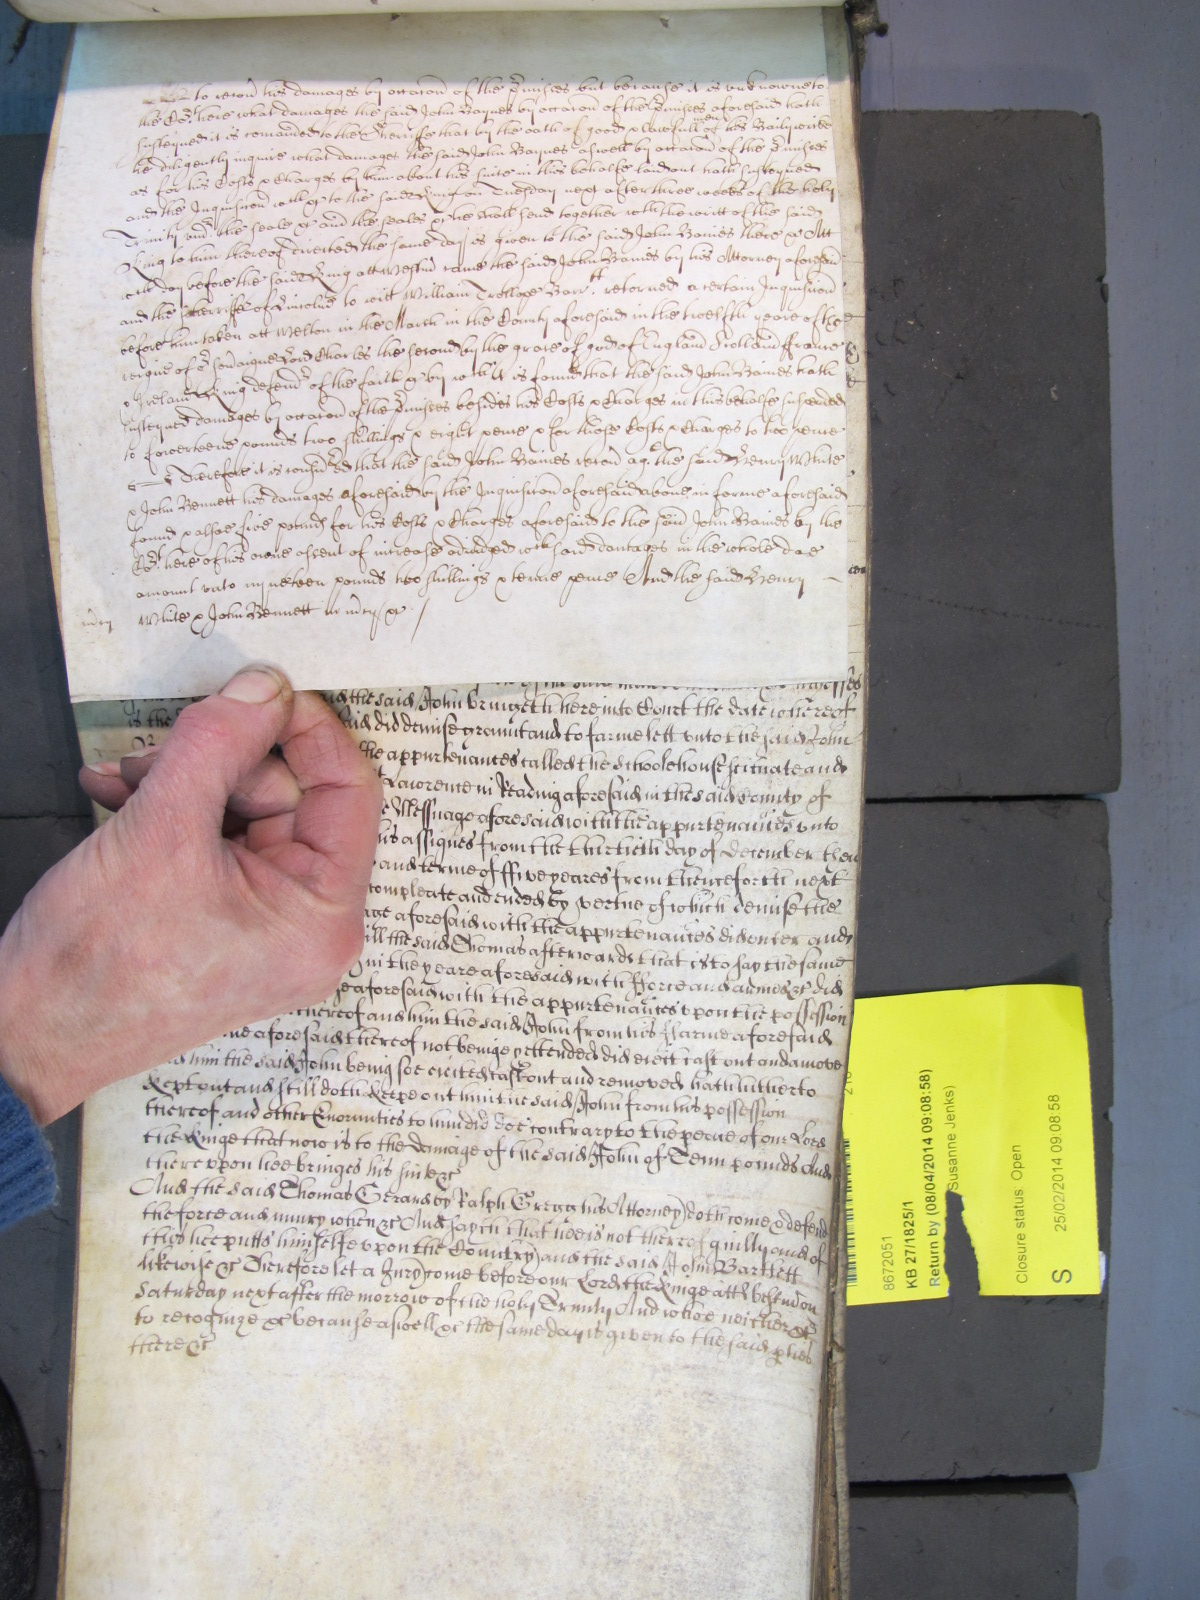 to recover his damages by occacon of the p̱misses but because it is unknowne to
the Cort here what damages the said John Baynes by occacon of the p̱misses aforesaid hath
susteyned it is comanded to the Sherriffe that by the oath of good & lawfull men of his Bailywicke
he diligently inquire what damages the said John Baynes aswell by occacon of the p̱misses
as for his Costs & Charges by him about his suite in this behalfe laid out hath susteyned
and the Inquisicon wch &c to the said King on Tuesday next after three weekes of the holy
Trinity undr the seale &c and the seales &c he shall send together with the writt of the said
King to him thereof directed the same day is given to the said John Baines there &c Att
wch day before the said King att Westmr came the said John Baines by his Attorney aforesaid
and the Sherriffe of Lincolne to witt William Trollope Barrtt returned a certain Inquisicon
before him taken att Welton in the Marsh in the County aforesaid in the twelfth yeare of the
reigne of or soveraigne Lord Charles the second by the grace of god of England Scotland France
& Ireland King defendr of the faith &c by wch it is found that the said John Baines hath
susteyned damages by occacon of the p̱misses besides his Costs & Charges in this behalfe susteyned
to fowerteene pounds two shillings & eight pence & for those Costs & Charges to two pence
Therefore it is considred that the said John Baines recover agt the said Henry White
& John Bennett his damages aforesaid by the Inquisicon aforesaid above in forme aforesaid
found & alsoe five pounds for his Costs & Charges aforesaid to the said John Baines by the
Cort here of his owne assent of increase adiudged wch said damages in the whole doe
amount unto nyneteen pounds two shillings & tenne pence And the said Henry
mcy White & John Bennett in mcy &c
said the said John bringeth here into Court the date whereof
is the said did demise graunt and to farme lett unto the said John
the appurtenances called the Schoolehouse scituate and
Lawrence in Readinge aforesaid in the said County of
Messuage aforesaid with the appurtenances unto
his assignes from the thirtieth day of December then
and terme of ffive yeares from thenceforth next
compleate and ended by vertue of which demise the
aforesaid with the appurtenances did enter and
till the said Thomas afterwards that is to say the same
in the yeare aforesaid with fforce and armes &c did
aforesaid with the appurtenances upon the possession
thereof and him the said John from his ffarme aforesaid
aforesaid thereof not beinge yett ended did eiect cast out and amove
him the said John being soe eiected cast out and removed hath hitherto
kept out and still doth keepe out him the said John from his possession
thereof and other Enormities to him did doe contrary to the peace of our Lord
the Kinge that now is to the damage of the said John of Tenn pounds And
thereupon hee bringes his suite &c
And the said Thomas Gerard by Ralph Gregg his Attorney doth come & defend
the force and iniury when &c And sayth that hee is not thereof guilty and of
this hee putts himselfe upon the Countrey and the said John Bartlett
likewise &c Therefore let a Jury come before our Lord the Kinge att Westm on
Saturday next after the morrow of the holy Trinity And who neither &c
to recognize &c because aswell &c the same day is given to the said p̱ties
there &c
8672051
KB 27/1825/1
Return by (08/04/2014 09:08:58)
Susanne Jenks)
Closure status: Open
S 25/02/2014 09:08:58